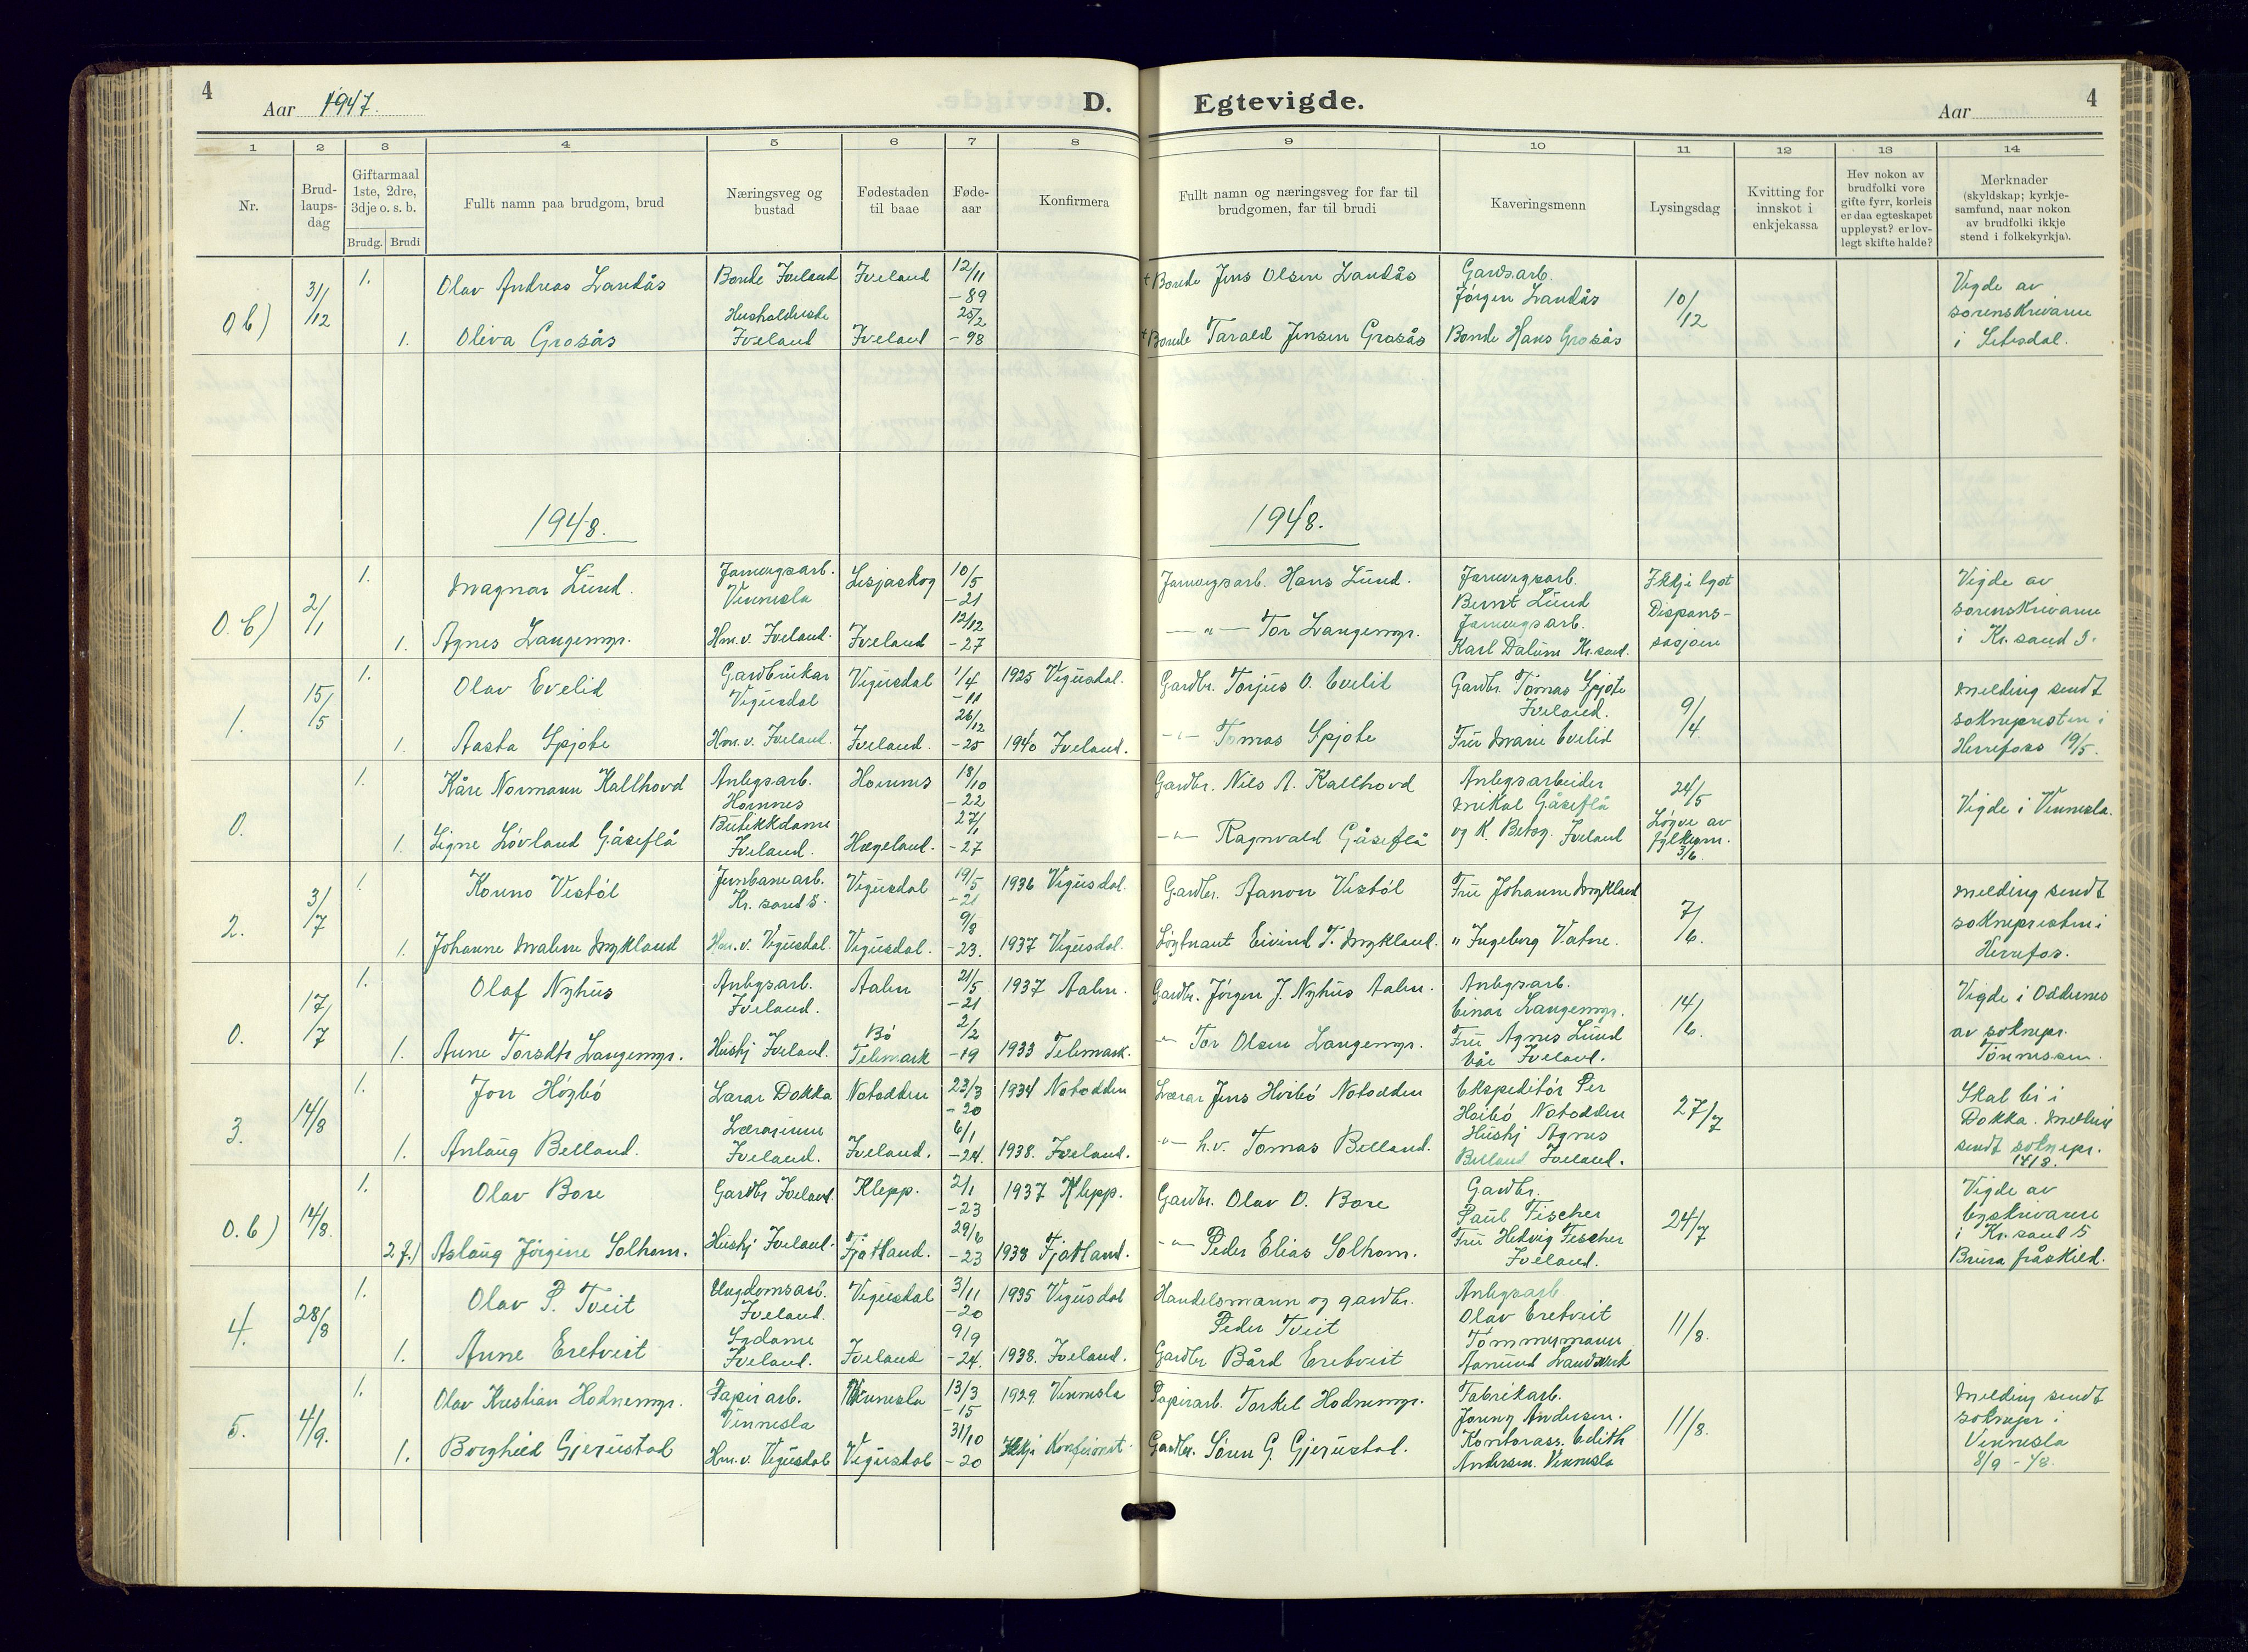 4
Aar 1947.
D.
Egtevigde.
Aar
4
1 2 3 4 5 6 7 8 9 10 11 12 13 14
Nr.
Brud-
laups-
dag
Giftarmaal
1ste, 2dre,
3dje o. s. b.
Brudg. Brudi
Fullt namn paa brudgom, brud
Næringsveg og
bustad
Fødestaden
til baae
Føde-
aar
Konfirmera
Fullt namn og næringsveg for far til
brudgomen, far til brudi
Kaveringsmenn
Lysingsdag
Kvitting for
innskot i
enkjekassa
Hev nokon av
brudfolki vore
gifte fyrr, korleis
er daa egteskapet
uppløyst? er lov-
legt skifte halde?
Merknader
(skyldskap; kyrkje-
samfund, naar nokon
av brudfolki ikkje
stend i folkekyrkja).
0 b) 31/12
1. Olav Andreas Landås Bonde Iveland Iveland 12/11 -89 + Bonde Jens Olsen Landås Gardsarb. Jørgen Landås 10/12
1. Oliva Grosås Husholderske Iveland Iveland 25/2 -98 + Bonde Tarald Jensen Grosås Bonde Hans Grosås
Vigde av
sorenskrivaren
i Setesdal.
1948.
1948.
0. b) 2/1
1. Magnar Lund. Jarnvegsarb. Vennesla Lesjaskog 10/5 -21 Jarnvegsarb. Hans Lund. Jarnvegsarb. Bernt Lund
1. Agnes Langemyr. Hm. v. Iveland. Iveland 12/12 -27 — " — Tor Langemyr. Jarnvegsarb. Karl Dalum Kr.sand.
Ikkje lyst
Dispens-
sasjon
Vigde av
sorenskrivaren
i Kr. sand S.
1. 15/5
1. Olav Evelid Gardbrukar Vegusdal Vegusdal 1/4 -11 1925 Vegusdal. Gardbr. Torjus O. Evelid Gardbr. Tomas Spjote Iveland. 9/4
1. Aasta Spjote Hm. v. Iveland. Iveland. 26/12 -25 1940 Iveland. — " — Tomas Spjote Fru Marie Evelid
Melding sendt
soknepresten i
Herefoss 19/5.
0.
1. Kåre Normann Kallhovd Anlegsarb. Hornnes Hornnes 18/10 -22 Gardbr. Nils A. Kallhovd Anlegsarbeider Mikal Gåseflå 24/5
1. Signe Løvland Gåseflå Butikkdame Iveland. Hægeland. 27/1 -27 — " — Ragnvald Gåseflå og K. Iveland
Løyve av
fylkesm.
3/6.
Vigde i Vennesla.
2. 3/7
1. Konno Vestøl Jernbanearb. Kr. sand S. Vegusdal 19/5 -21 1936 Vegusdal. Gardbr. Aanon Vestøl Fru Johanne Mykland 7/6.
1. Johanne Malene Mykland Hm. v. Vegusdal. Vegusdal. 9/8 -23. 1937 Vegusdal. Løytnant Eivind T. Mykland. " Ingeborg Vatne.
Melding sendt
soknepresten i
Herefos.
0. 17/7
1. Olaf Nyhus Anlegsarb. Iveland. Aalen 21/5 -21 1937 Aalen. Gardbr. Jørgen J. Nyhus Aalen. Anlegsarb. Einar Langemyr. 14/6.
1. Anne Torsdtr Langemyr. Hushj Iveland. Bø Telemark 2/2 -19 1933 Telemark. — " — Tor Olsen Langemyr. Fru Agnes Lund Iveland.
Vigde i Oddernes
av soknepr.
Tønnessen.
3. 14/8
1. Jon Høybø Lærar Dokka Notodden 23/3 -20 1934 Notodden Lærar Jens Høibø Notodden Ekspeditør Per Høibø Notodden 27/7
1. Anlaug Belland. Lærarinne Iveland. Iveland. 6/1 -24. 1938. Iveland. — " — h.v. Tomas Belland. Hushj Agnes Belland Iveland.
Skal bu i
Dokka. Melding
sendt soknepr.
14/8.
0. b) 14/8.
1. Olav Bore Gardbr Iveland Klepp. 2/1 -23 1937 Klepp. Gardbr. Olav O. Bore Gardbr. Paul Fischer 24/7
2 f.) Aslaug Jørgine Solhom. Hushj Iveland. Fjotland. 29/6 -23 1938 Fjotland. — " — Peder Elias Solhom. Fru Hedvig Fischer Iveland.
Vigde av
byskrivaren
i Kr. sand S
Brura fråskild.
4. 28/8
1. Olav P. Tveit Ungdomsarb. Iveland. Vegusdal 3/11 -20 1935 Vegusdal Handelsmann og gardbr. Peder Tveit Anlegsarb Olav Eretveit 11/8.
1. Anne Eretveit Sydame Iveland. Iveland 9/9 -24. 1938. Iveland. Gardbr Bård Eretveit Tømmermann Aanund Landverk
5. 4/9.
1. Olav Kristian Hodnemyr. Papirarb. Vennesla Vennesla 13/3 -15 1929. Vennesla Papirarb. Torkel Hodnemyr. Fabrikarb. Andersen. 11/8.
1. Borghild Gjerustad Hm. v. Vegusdal Vegusdal 31/10 -20 Ikkje Konfirmert. Gardbr. Sønn G. Gjerustad. Kontorass. Edith Andersen. Vennesla
Melding sendt
soknepr i
Vennesla
8/9 - 48.